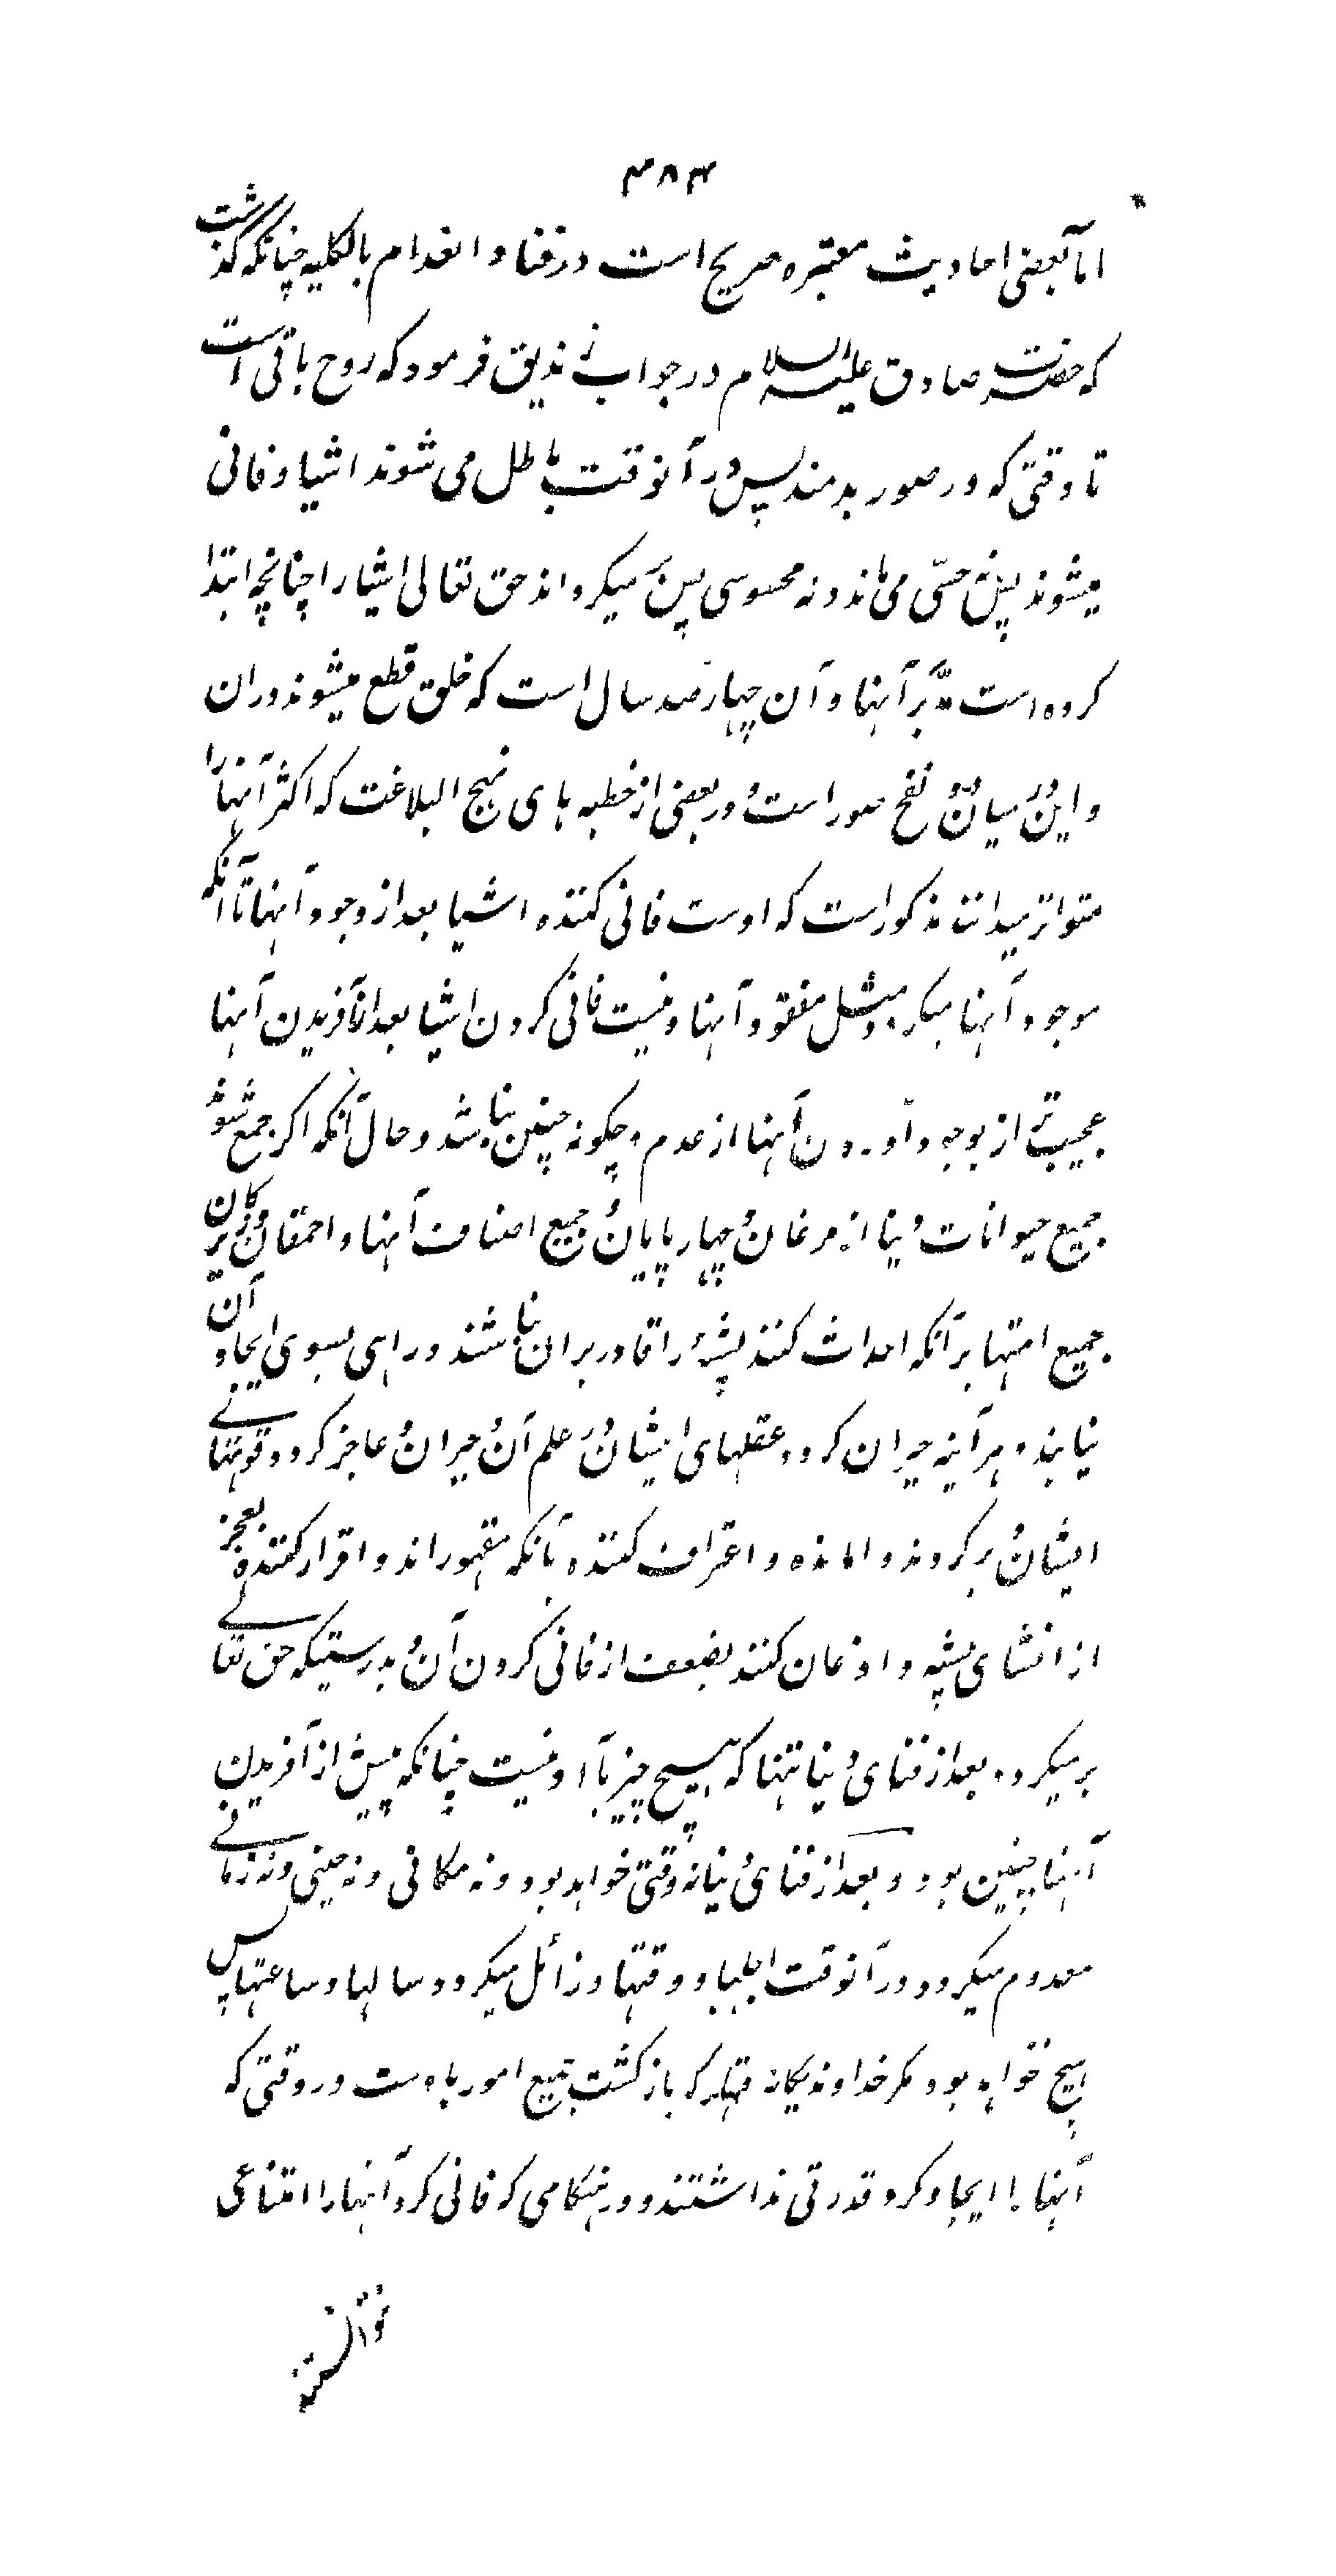 ۴۸۴
اما بعضی احادیث معتبره صریح است در فنا و انعدام بالکلیه چنانکه گذشت
که حضرت صادق علیه السلام در جواب زندیق فرمود که روح باقی است
تا وقتی که در صور بدمند پس در آنوقت باطل می شوند اشیا و فانی
میشوند پس نه حسّی می ماند و نه محسوسی پس بر میکرداند حق تعالی اشیا را چنانچه ابتدا
کرده است مدبّر آنها و آن چهار صد سال است که خلق قطع میشوند دران
و این در میان دو نفخ صور است و در بعضی از خطبه های نهج البلاغت که اکثر آنها را
متواتر میدانند مذکور است که اوست فانی کننده اشیا بعد از وجود آنها تا آنکه
موجود آنها میکردد مثل مفقود آنها و نیست فانی کردن اشیا بعد از آفریدن آنها
عجیب تر از بوجود آوردن آنها از عدم و چکونه چنین نباشد و حال آنکه اکر جمع شوند
جمیع حیوانات دنیا از مرغان و چهار پایان و جمیع اصناف آنها و احمقان و زیرکان
جمیع امتها بر آنکه احداث کنند پشۀ را قادر بران نباشند و راهی بسوی ایجاد آن
نیابند و هر آینه حیران کردد عقلهای ایشان در علم آن و حیران و عاجز کردد قوتهای
ایشان و بر کردند وامانده و اعتراف کننده بآنکه مقهوراند و اقرار کننده بعجز
از انشای پشه و اذعان کنند بضعف از فانی کردن آن و بدرستیکه حق تعالی
بر میکردد بعد از فنای دنیا تنها که هیچ چیز با او نیست چنانکه پیش از آفریدن
آنها چنین بود و بعد از فنای دنیا نه وقتی خواهد بود و نه مکانی و نه حینی و نه زمانی
معدوم میکردد در آنوقت اجلها و وقتها و زائل میکردد سالها و ساعتها پس
هیچ نخواهد بود مکر خداوند یکانه قهار که بازکشت جمیع امور باوست در وقتی که
آنها را ایجاد کرد قدرتی نداشتند و در هنکامی که فانی کرد آنها را امتناعی